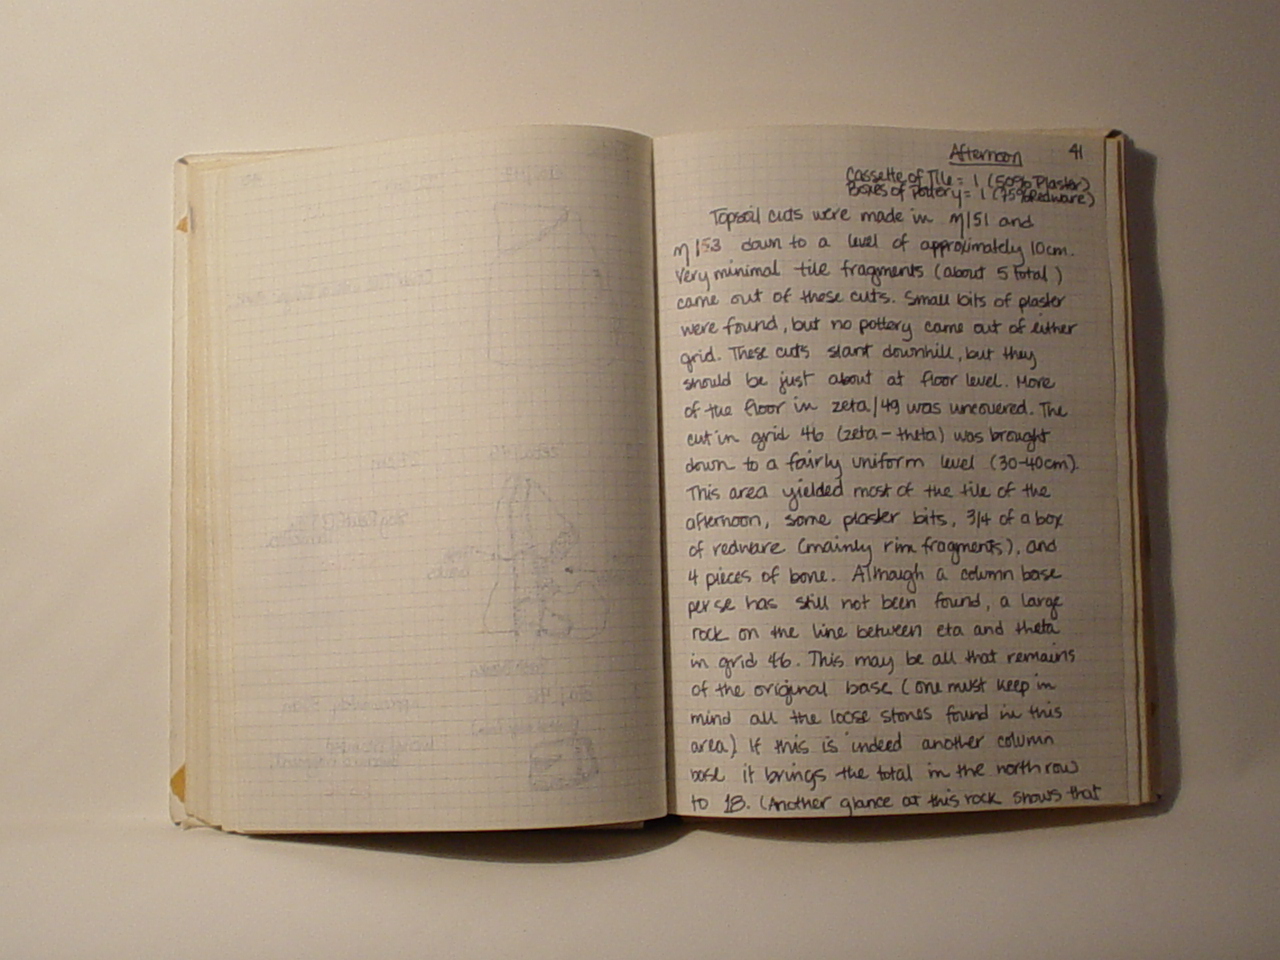 Afternoon 41
Cassette of Tile = 1 (50% Plaster)
Boxes of Pottery = 1 (75% Redware)
Topsoil cuts were made in η/51 and
η/53 down to a level of approximately 10cm.
Very minimal tile fragments (about 5 total)
came out of these cuts. Small bits of plaster
were found, but no pottery came out of either
grid. These cuts slant downhill, but they
should be just about at floor level. More
of the floor in zeta/49 was uncovered. The
cut in grid 46 (zeta-theta) was brought
down to a fairly uniform level (30-40cm).
This area yielded most of the tile of the
afternoon, some plaster bits, 3/4 of a box
of redware (mainly rim fragments), and
4 pieces of bone. Although a column base
per se has still not been found, a large
rock on the line between eta and theta
in grid 46. This may be all that remains
of the original base (one must keep in
mind all the loose stones found in this
area) If this is indeed another column
base it brings the total in the north row
to 18. (Another glance at this rock shows that